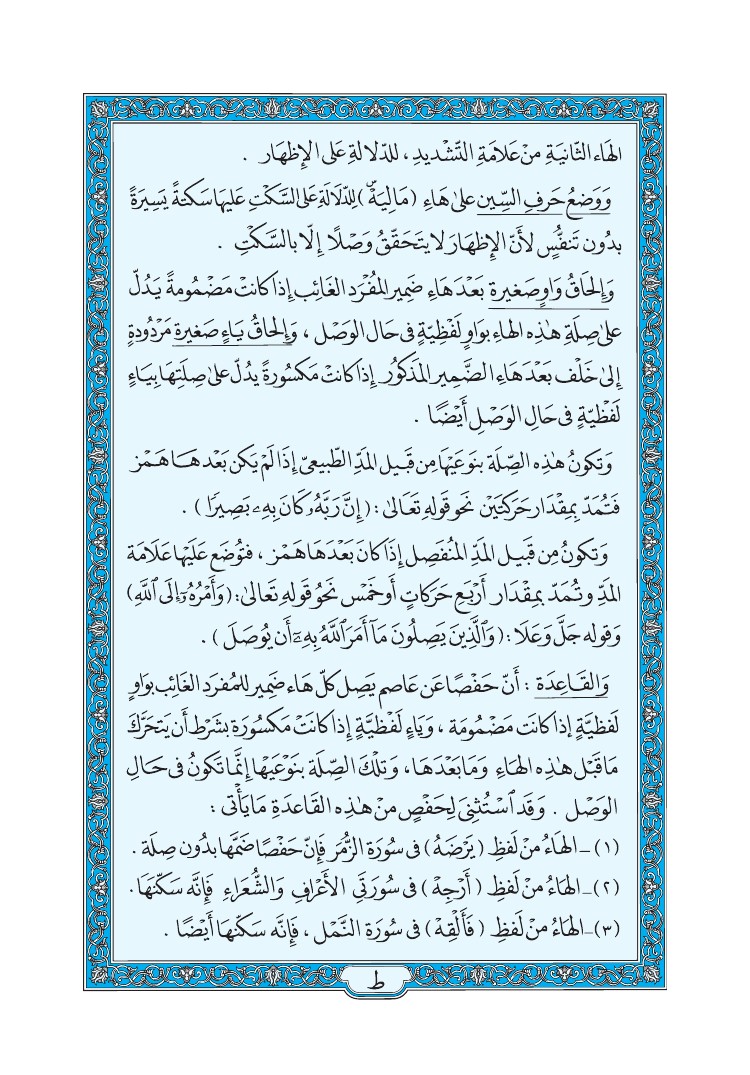 الهَاء الثَّانيَةِ مِنْ عَلَامَةِ التَّشْدِيدِ ، للدِّلَالَةِ عَلَى الإِظهَارِ .
وَوَضْعُ حَرفِ السِّين عَلىٰ هَاءِ (مَالِيَهْۜ) لِلدَّلَالَةِ عَلَى السَّكْتِ عَلَيهَا سَكتَةً يَسِيرَةً
بدُون تَنفُّسٍ لأَنّ الإِظهَارَ لا يتَحَقَّقُ وَصْلًا إلَّا بالسَّكْتِ .
وَإِلحَاقُ وَاوٍ صَغِيرةٍ بَعْدَ هَاءِ ضَمِيرِ المُفْرَدِ الغَائب إذَا كانَتْ مَضْمُومةً يَدُلّ
عَلىٰ صِلَةِ هٰذِهِ الهاءِ بوَاوٍ لَفْظِيّةٍ فى حَال الوَصْل ، وَإِلحَاقُ يَاءٍ صَغِيرَةٍ مَرْدُودةٍ
إلىٰ خَلْف بَعْدَ هَاءِ الضَّمِيرِ المَذكوُرِ إذَا كانَتْ مَكسُورَةً يدُلّ عَلىٰ صِلَتِهَا بيَاءٍ
لَفْظِيّةٍ فى حَالِ الوَصْلِ أَيْضًا .
وَتكونُ هٰذِهِ الصِّلَة بنَوعَيْهَا مِن قَبيل المَدِّ الطَّبيعىّ إذَا لَمْ يكن بَعدهَا هَمْز
فَتُمَدّ بمِقْدَارِ حَرَكتَيْن نَحوَ قولِهِ تَعَالىٰ : (إِنَّ رَبَّهُۥ كَانَ بِهِۦ بَصِيرًا) .
وَتكونُ مِن قَبيلِ المَدِّ المُنفَصِل إذَا كانَ بَعْدَهَا هَمْز ، فتُوضَع عَلَيْهَا عَلَامَة
المَدِّ وتُمَدّ بمِقْدَار أَرْبَعِ حَركاتٍ أَو خَمْسٍ نَحْوُ قولِهِ تَعَالىٰ: (وَأَمْرُهُۥٓ إِلَى ٱللَّهِ)
وَقوله جَلَّ وَعَلَا : (وَٱلَّذِينَ يَصِلُونَ مَآ أَمَرَ ٱللَّهُ بِهِۦٓ أَن يُوصَلَ) .
وَالقَاعِدَة : أَنّ حَفْصًا عَن عَاصِم يَصِل كلّ هَاء ضَمِير للمُفرَد الغَائب بوَاوٍ
لَفظيّةٍ إذا كانَت مَضْمُومَة ، وَيَاءٍ لَفْظيّةٍ إذا كانَتْ مَكسُورَة بشَرْط أَن يتَحَرَّكَ
مَا قَبْل هٰذِهِ الهَاءِ وَمَا بَعدَهَا ، وَتلكَ الصِّلَة بنَوْعَيْها إنَّمَا تكونُ فى حَالِ
الوَصْل . وَقَد ٱسْتُثنىَ لِحَفْصٍ مِنْ هٰذِهِ القَاعدَةِ مَا يَأْتى :
(١) ــ الهَاءُ مِنْ لَفْظِ (يَرْضَهُ) فى سُورَةِ الزُّمَر فَإِنّ حَفْصًا ضَمَّها بدُون صِلَة .
(٢) ــ الهَاءُ مِنْ لَفظِ (أَرْجِهْ) فى سُورَتَي الأَعْرَافِ وَالشُّعَرَاءِ فَإِنَّه سَكّنَهَا .
(٣) ــ الهَاءُ مِنْ لَفْظِ (فَأَلْقِهْ) فى سُورَةِ النَّمْل ، فَإنَّه سَكنَهَا أَيْضًا .
ط